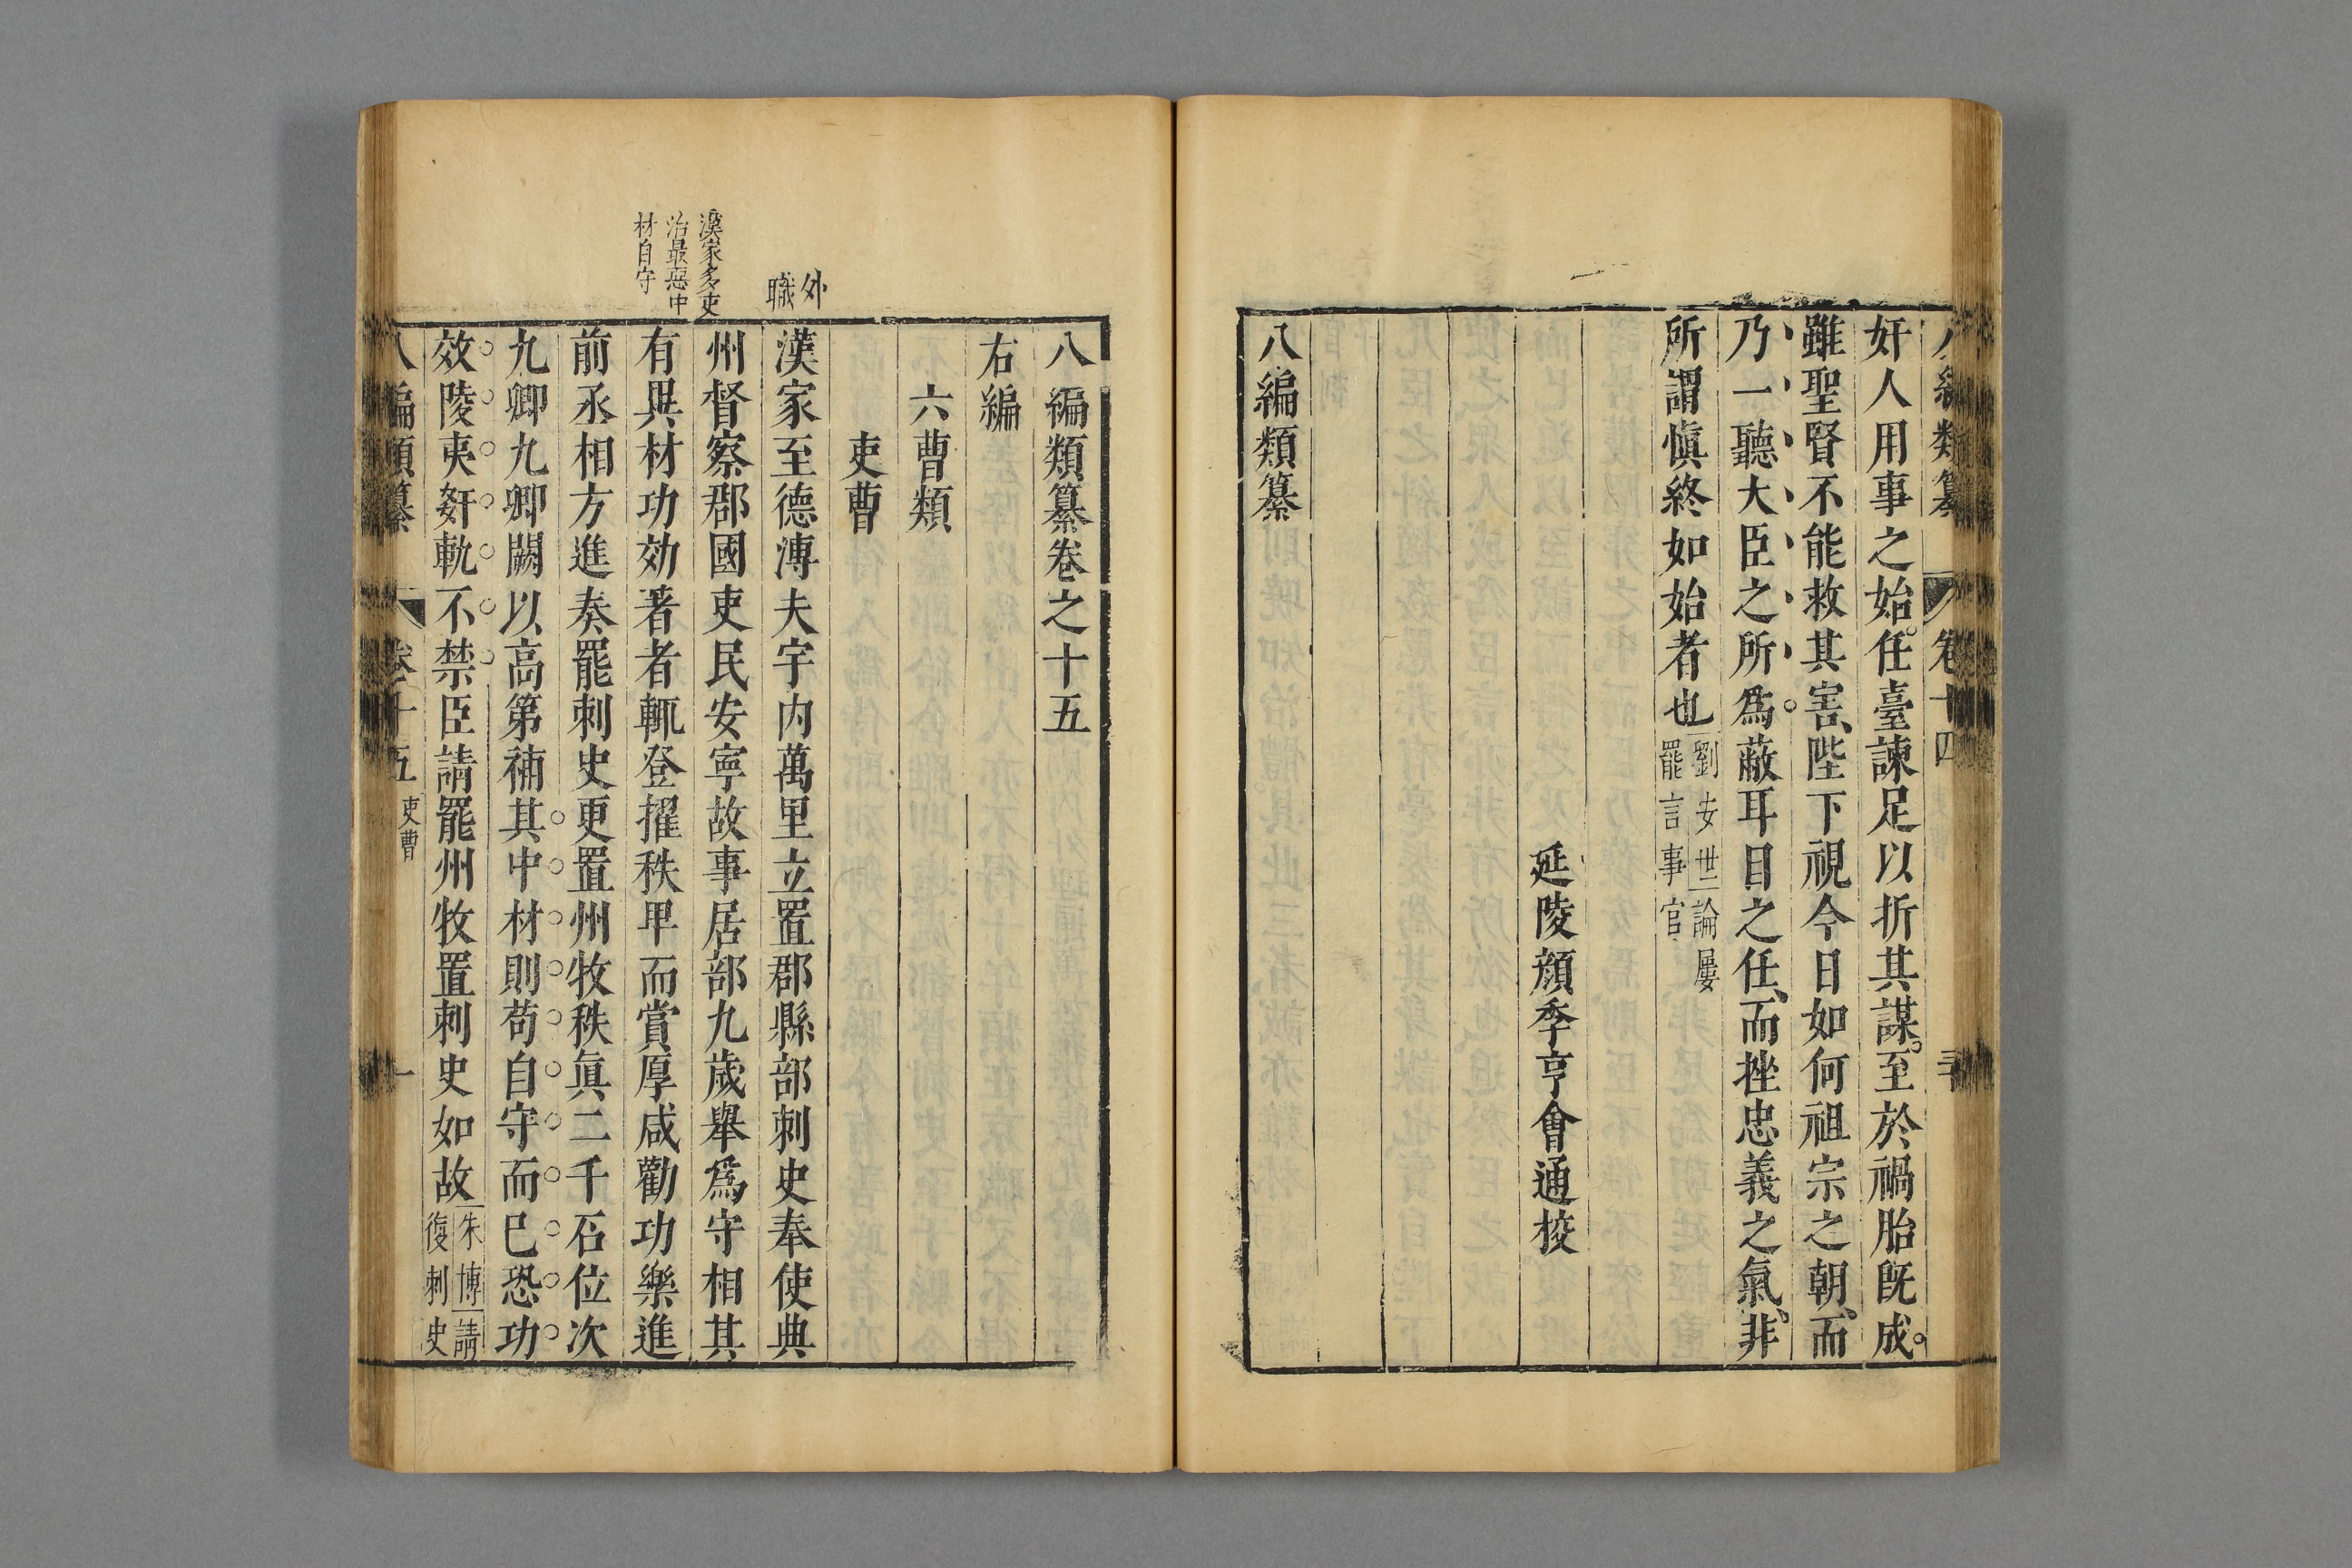 八編類纂 卷十四
奸人用事之始。任臺諫足以折其謀。至於禍胎旣成。
雖聖賢不能救其害、陛下視今日如何祖宗之朝、而
乃一聽大臣之所爲。蔽耳目之任、而挫忠義之氣、非
所謂愼終如始者也 劉安世論屢
罷言事官
延陵顔季亨會通挍
八編類纂
八編類纂卷之十五
右編
六曹類
吏曹
外
職
漢家至德溥夫宇內萬里立置郡縣部刺史奉使典
漢家多吏
治最惡中
材自守
州督察郡國吏民安寧故事居部九歲舉爲守相其
有異材功効著者輒登擢秩卑而賞厚咸勸功樂進
前丞相方進奏罷刺史更置州牧秩眞二千石位次
九卿九卿闕以高第補其中材則苟自守而已恐功
效陵夷姧軌不禁臣請罷州牧置刺史如故 朱博請
復刺史
八編類纂 卷十五 吏曹 一